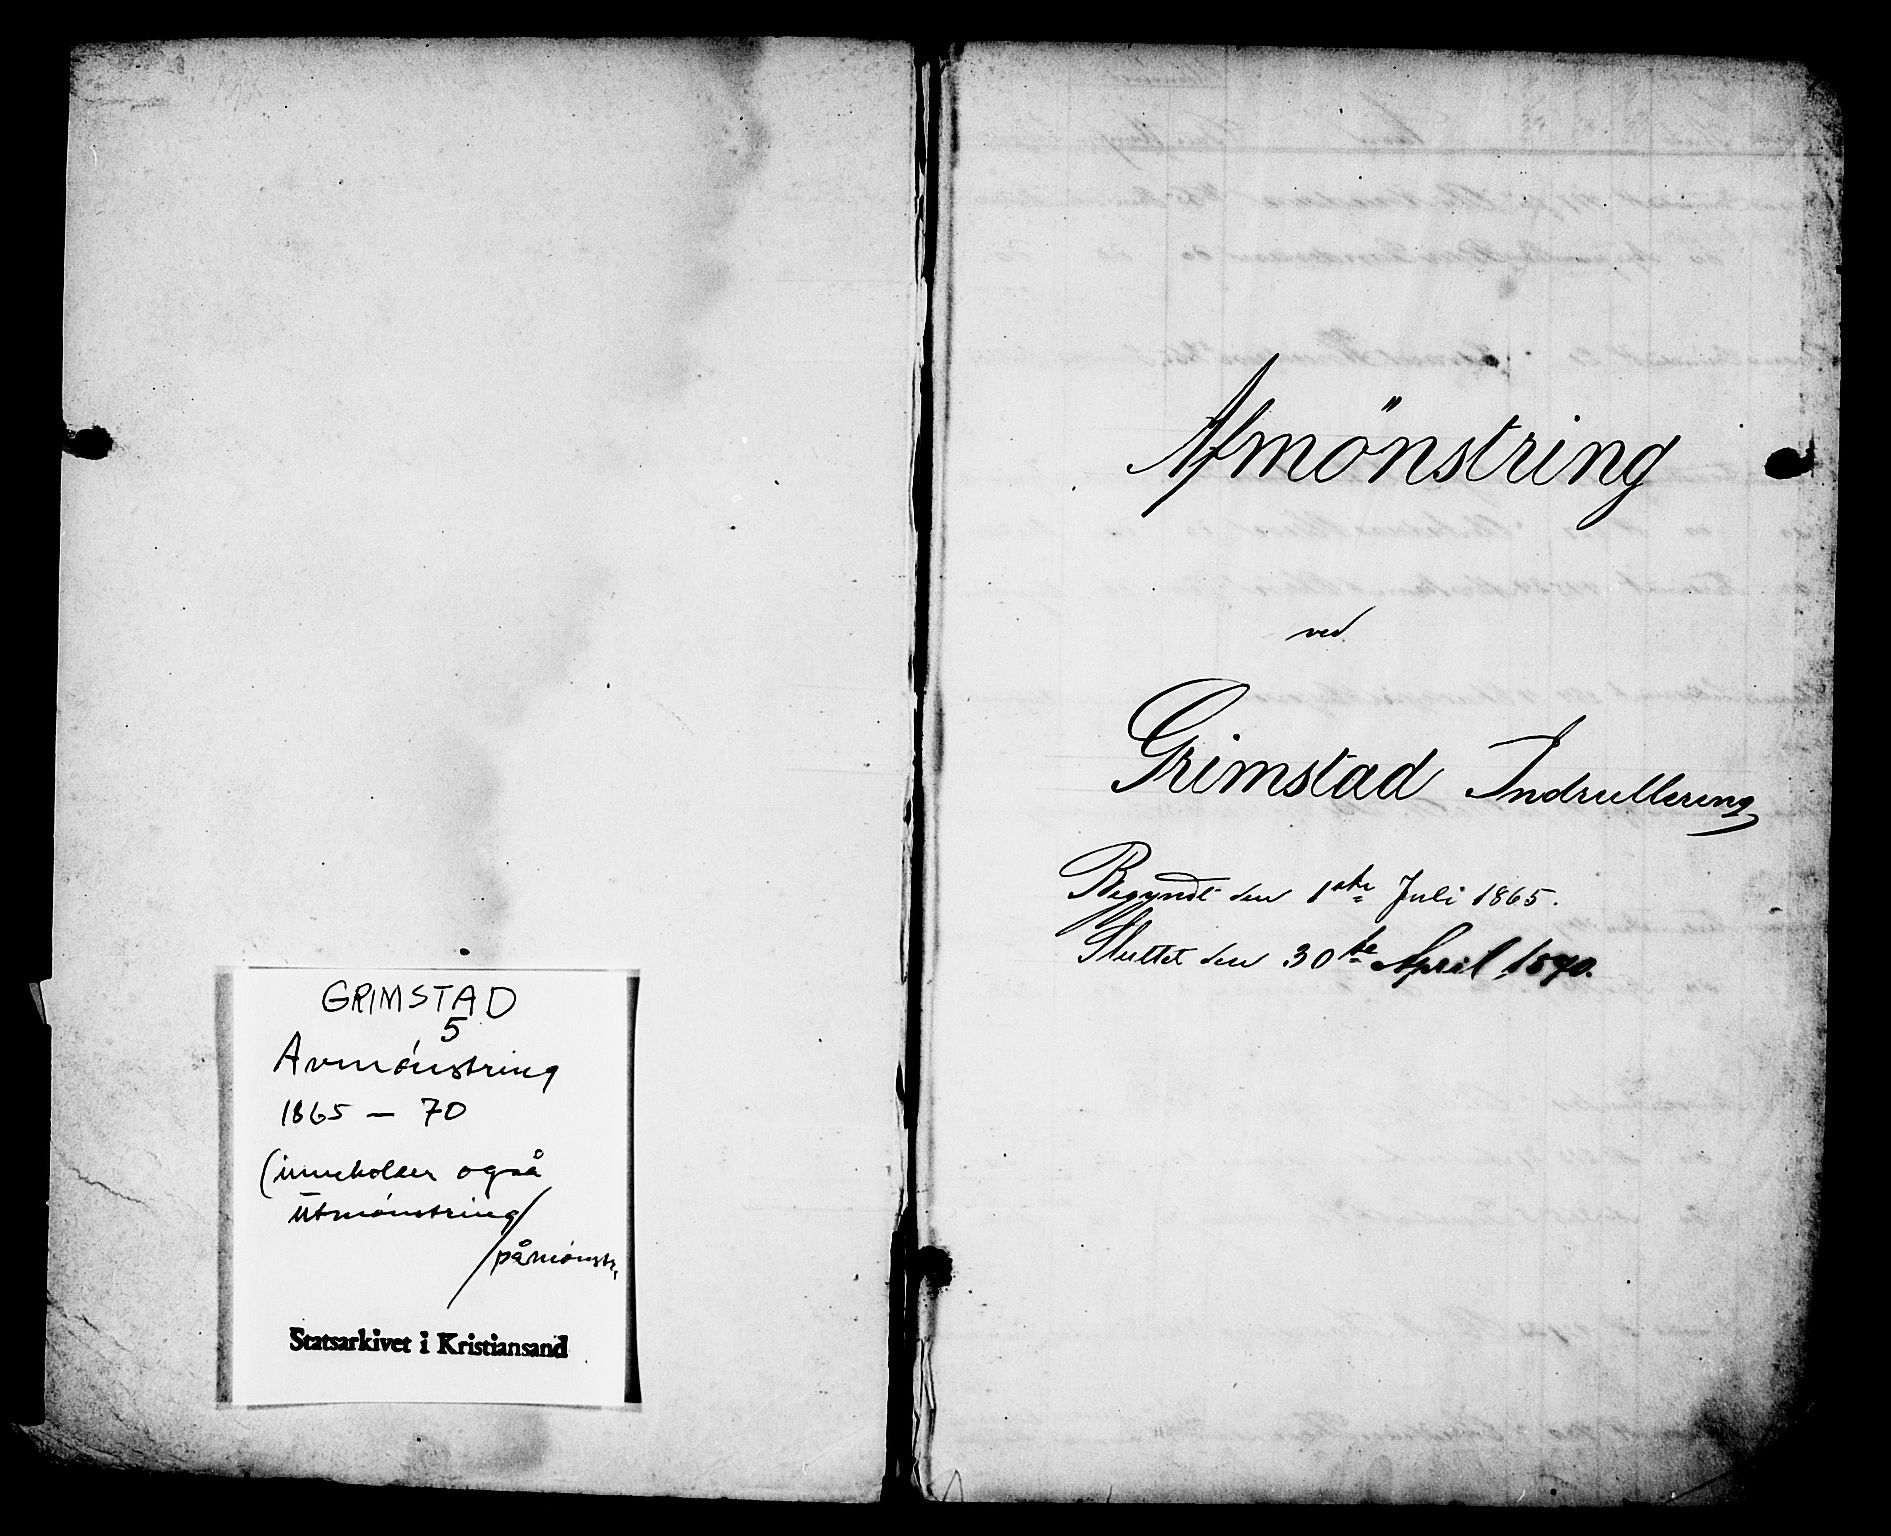 GRIMSTAD
5
Avmønstring
1865 — 70
(inneholder også
utmønstring/
påmønstr.
Statsarkivet i Kristiansand
Afmønstring
ved
Grimstad Indrullering
Begyndt den 1ste Juli 1865.
Sluttet den 30te April 1870.